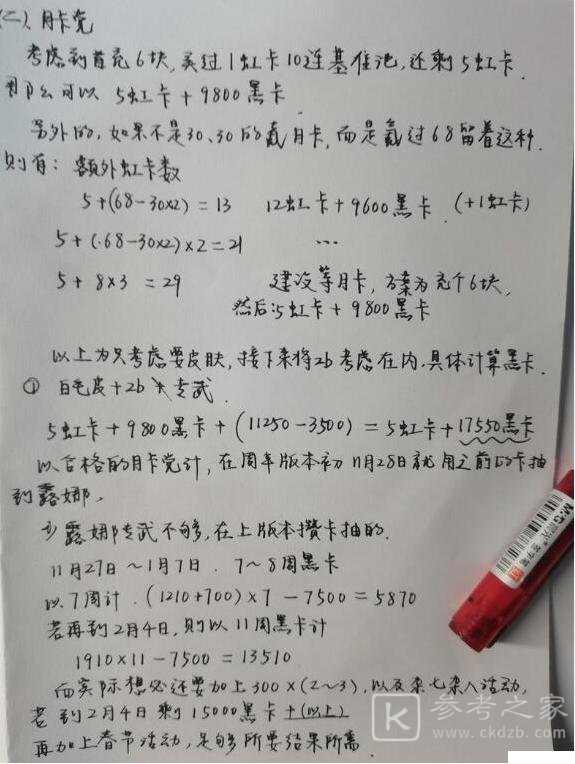 (二)、月卡党
考虑到首充6块,买过1虹卡10连基准池,还剩5虹卡.
那么可以 5虹卡+9800黑卡
另外的,如果不是30、30的氪月卡,而是氪过68留着这种.
则有: 额外虹卡数
5+(68-30×2)=13 12虹卡+9600黑卡 (+1虹卡)
5+(68-30×2)×2=21 ...
5+8×3=29 建议等月卡,方案为充个6块,
然后:5虹卡+9800黑卡
以上为只考虑要皮肤,接下来将2b考虑在内.具体计算黑卡.
① 白毛皮+2b 专武.
5虹卡+9800黑卡+(11250-3500)=5虹卡+17550黑卡
以合格的月卡党计,在周年版本初11月28日就用之前的卡抽
到露娜.
露娜专武不够,在上版本攒卡抽的.
11月27日~1月7日. 7~8周黑卡
以7周计.(1210+700)×7-7500=5870
若再到2月4日,则以11周黑卡计
1910×11-7500=13510
而实际想必还要加上300×(2~3),以及杂七杂八活动,
若到2月4日剩15000黑卡+(以上)
再加上春节活动,足够所要结果所需.
M&G
K 参考之家
www.ckdzb.com